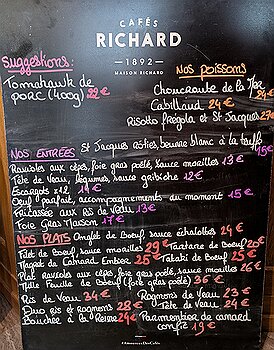 CAFÉS
RICHARD
— 1892 —
MAISON RICHARD
Suggestions:
Tomahawk de
porc (400g) 22 €
Nos poissons
Choucroute de la Mer
Cabillaud 24 €
24 €
Risotto frégola et St Jacques 27€
NOS ENTRÉES
St Jacques rôties, beurre blanc à la truffe
15€
Ravioles aux cèpes, foie gras poêlé, sauce morilles 13 €
Tête de Veau, légumes, sauce gribiche 12 €
Escargots x12 19 €
Oeuf parfait, accompagnements du moment 15€
Fricassée aux Ris de Veau 13€
Foie Gras Maison 17€
NOS PLATS
Onglet de Boeuf, sauce échalotes 24 €
Filet de Boeuf, sauce morilles 29€
Tartare de Boeuf 20€
Magret de Canard Entier 25€
Tataki de Boeuf 25 €
Plat ravioles aux cèpes, foie gras poêlé, sauce morilles 26 €
Mille Feuille de Boeuf (foie gras poêlé) 36 €
Ris de Veau 34€
Rognons de Veau 23 €
Duo ris et rognons 28 €
Tête de Veau 24 €
Bouchée à la Reine 24€
Parmentier de canard
confit 19 €